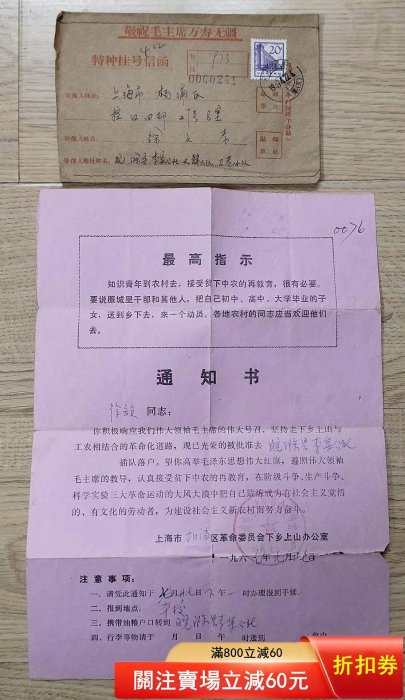 敬祝毛主席万寿无疆
特种挂号信函
P73
0000241
20
收信人地址:上海市 杨浦区
收信人姓名:徐
寄信人地址姓名:皖
0076
最高指示
知识青年到农村去,接受贫下中农的再教育,很有必要。
要说服城里干部和其他人,把自己初中、高中、大学毕业的子
女,送到乡下去,来一个动员。各地农村的同志应当欢迎他们
去。
通知书
徐 同志:
你积极响应我们伟大领袖毛主席的伟大号召,坚持走下乡上山与
工农相结合的革命化道路,现已光荣的被批准去
插队落户。望你高举毛泽东思想伟大红旗,遵照伟大领袖
毛主席的教导,认真接受贫下中农的再教育,在阶级斗争、生产斗争、
科学实验三大革命运动的大风大浪中把自己锻炼成为有社会主义觉悟
的、有文化的劳动者,为建设社会主义新农村而努力奋斗。
上海市 杨浦 区革命委员会下乡上山办公室
一九六 年 月 日
注意事项:
一、请凭此通知于 月 日 午 时办理报到手续。
二、报到地点:学校
三、携带油粮户口转到
四、行李等物请于 月 日 时送到
滿800立減60
關注賣場立減60元
折扣券